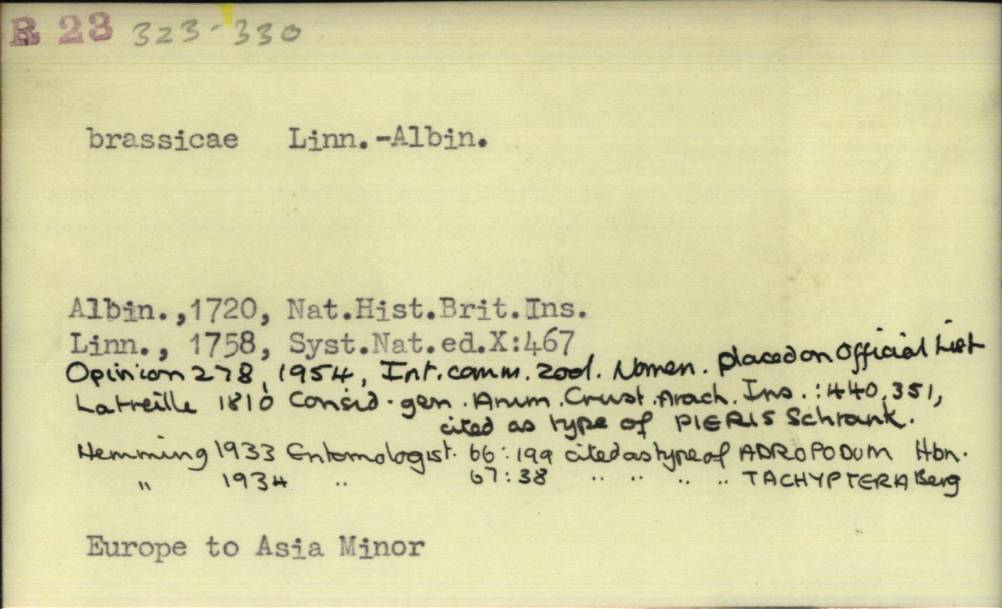 R 23 323-330
brassicae Linn.-Albin.
Albin.,1720, Nat.Hist.Brit.Ins.
Linn., 1758, Syst.Nat.ed.X:467
Opinion 278, 1954, Int. comm. zool. Nomen. placed on Official List
Latreille 1810 Consid. gen. Anim. Crust. Arach. Ins.: 440, 351,
cited as type of PIERIS Schrank.
Hemming 1933 Entomologist. 66:199 cited as type of ADROPODUM Hbn.
" 1934 .. 67:38 .. .. .. .. TACHYPTERA Berg
Europe to Asia Minor